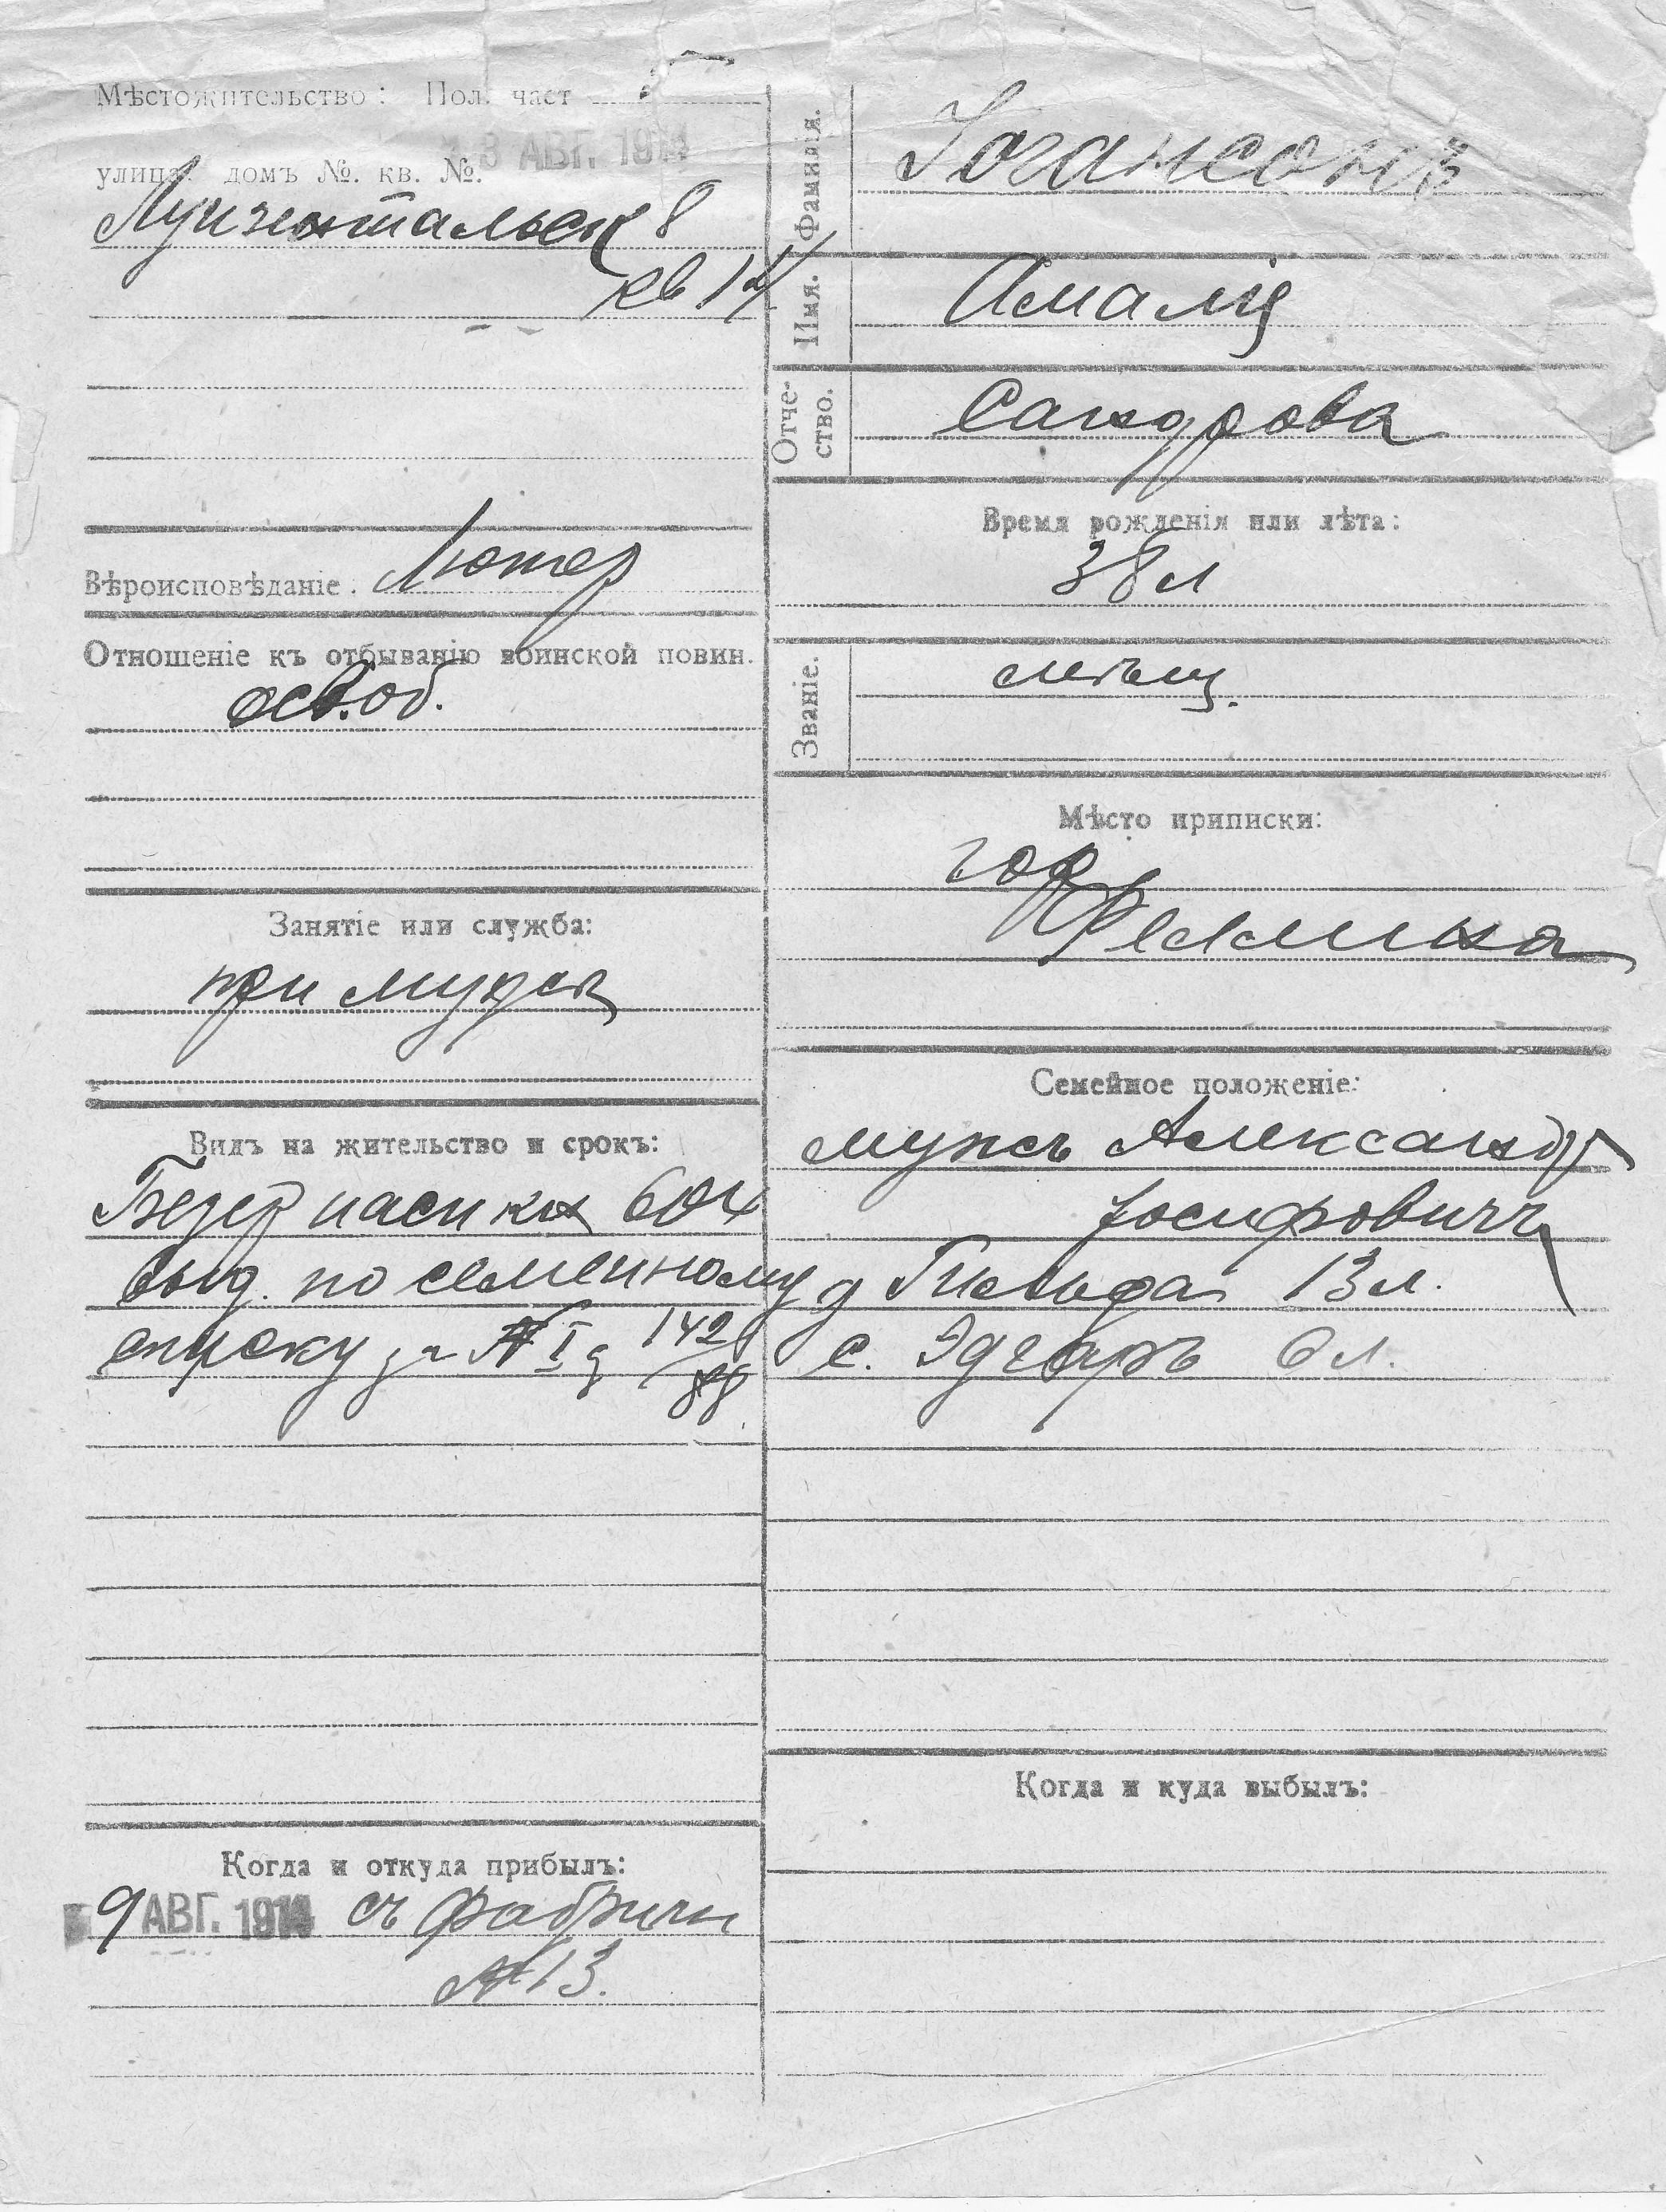 Мѣстожительство: Пол. част
3 АВГ. 1914
улица домъ №. кв. №.
8
кв 14
Вѣроисповѣданіе: Лютер
Отношеніе къ отбыванію воинской повин.
освоб.
Занятіе или служба:
при мужѣ
Видъ на жительство и срокъ:
604
выд. по семейному
списку за № I д 142/88
Когда и откуда прибылъ:
9 АВГ. 1914 съ Фабричн
№ 13.
Фамилія. Іогансонъ
Имя. Амалія
Отчество. Сандрова
Время рожденія или лѣта:
38 л
Званіе. мѣщ.
Мѣсто приписки:
гор
Феллина
Семейное положеніе:
мужъ Александр
Іосифовичъ
д Гильда 13 л.
с. Эдгаръ 6 л.
Когда и куда выбылъ: